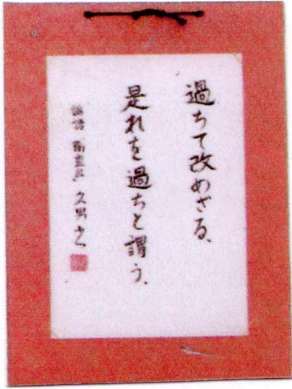 過ちて改めざる、
是れを過ちと謂う、
論語 衛霊公